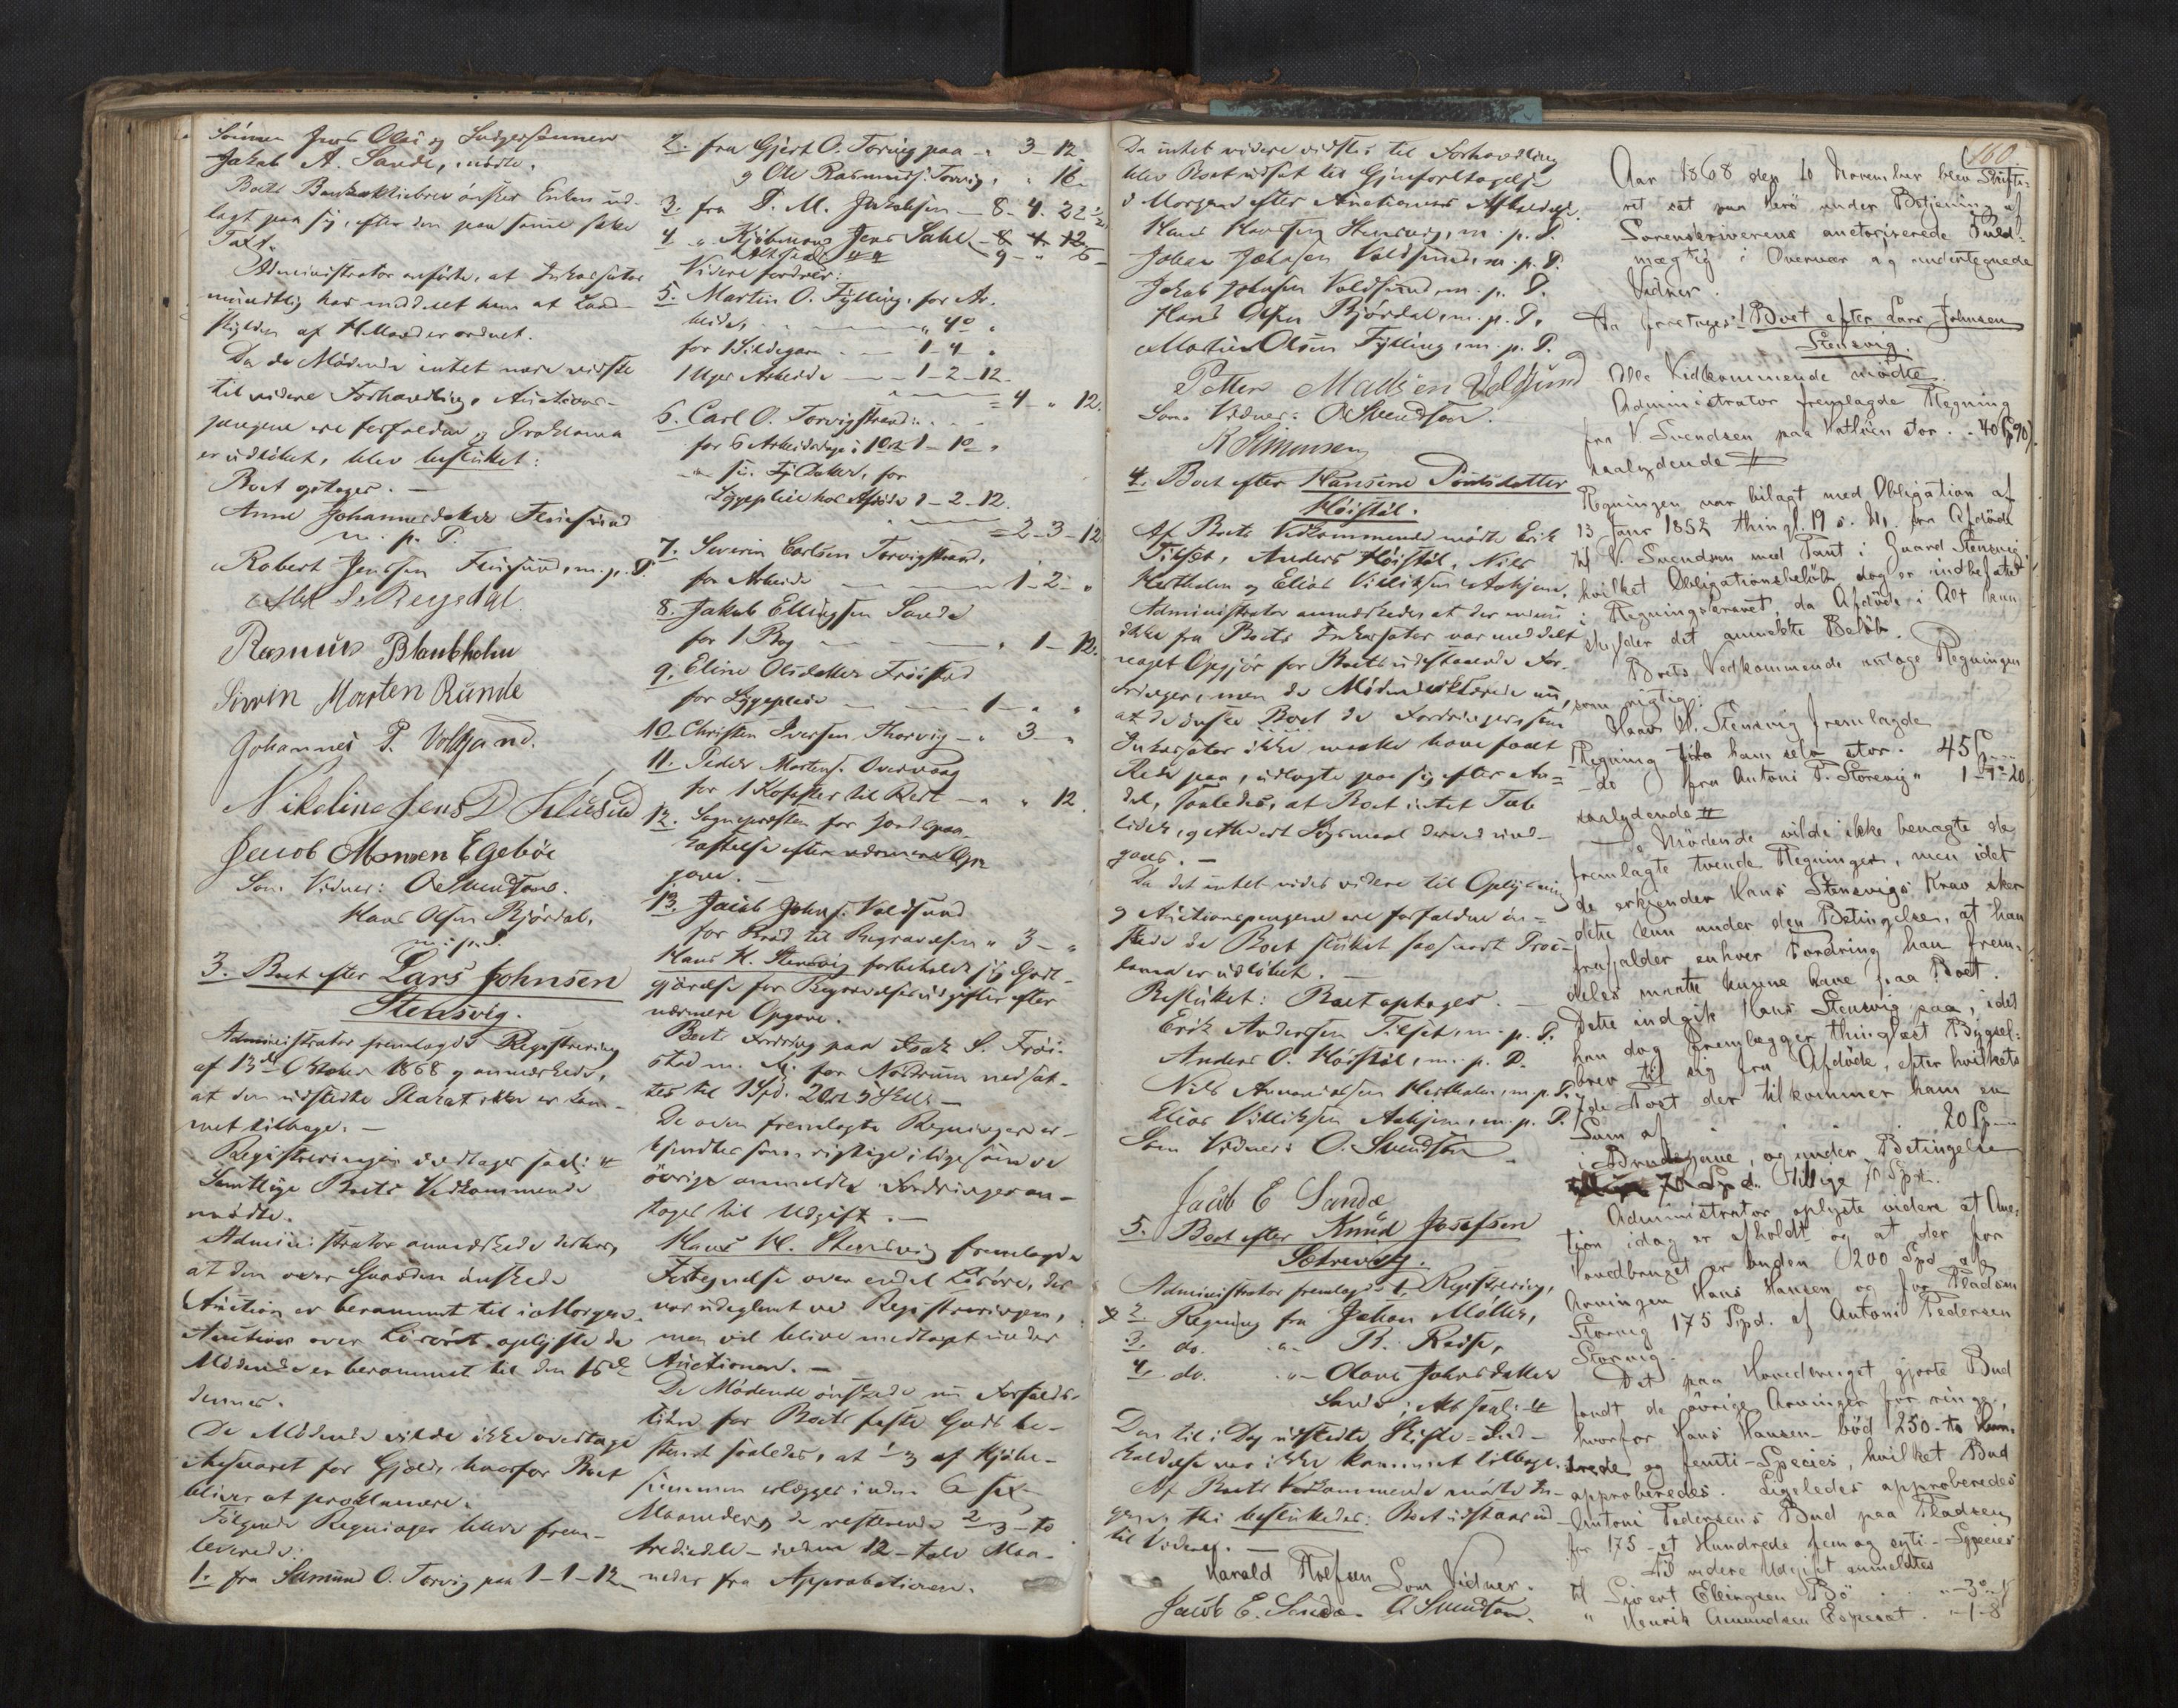 Sønnen Jens Olsen og Svigersønnen
Jakob A. Sande, mødte.
Boets Bankaktiebrev ønsker Enken ud-
lagt paa sig, efter den paa samme satte
Taxt.
Administrator anførte, at Inkassator
mundtlig har meddelt ham at Land-
skylden af er ordnet.
Da de Mødende intet mere vidste
til videre Forhandling, Auctions-
pengene ere forfaldne og Proklama
er udløbet, blev besluttet:
Boet optages. —
Anne Johannesdatter Flusund
m. p. P.
Robert Jensen Flusund, m. p. P.
Rasmus Blankholm
Sivrin Marten Runde
Johannes P. Voldsund.
Nikoline Jens D
Jacob Monsen Egebøe
Som Vidner: O Svendsen.
Hans Olsen Bjørdal,
m. p. P.
3. Boet efter Lars Johnsen
Stensvig.
Administrator fremlagde Registrering
af 13de Oktober 1868 og anmærkede,
at den udstedte Plakat ikke er kom-
met tilbage. —
Registreringen indtages saal: #
Samtlige Boets Vedkommende
mødte.
Administrator anmærkede derhos,
at den over Gaarden ønskede
Auction er berammet til imorgen.
Auction over Løsøret, oplyste de
Mødende er berammet til den 16de
dennes.
De Mødende vilde ikke overtage
Ansvaret for Gjæld, hvorfor Boet
bliver at proklamere.
Følgende Regninger bleve frem-
leverede:
1. fra Samund O. Torvig paa 1-1-12
2. fra Gjert O. Torvig paa - " 3-12
og Ole Rasmuss. Torvig, " " 16.
3. fra P. M. Jakobsen - 8. 4. 22½
4. " Kjøbmand Jens Dahl - 8 4 12
9 - " 5 -
Videre fordrer:
5. Martin O. Fylling, for Ar-
beide, " 4 "
for 1 Sildegarn - 1-4 "
1 Uges Arbeide - 1-2-12
= 4 - " 12.
6. Carl O. Torvigstrand:
for 6 Arbeidsdage i 1 - 1
for
Sygepleie hos Afdøde 1-2-12.
= 2-3-12
7. Severin Carlsen Torvigstrand,
for Arbeide - 1-2 - "
8. Jakob Ellingsen Sande
for 1 Bog " 1-12.
9. Eline Olsdatter Frøistad
for Sygepleie - 1 - " "
10. Christen Iversen Thorvig - " 3 - "
11. Peder Martens. Overvaag
for - " " 12.
12. Sognepresten for Jordspaa-
kastelse efter nærmere Op-
gave. —
13. Jacob Johns. Voldsund
for Brød til Begravelsen " 3 - "
Hans H. Stensvig forbeholdt sig Godt-
gjørelse for Begravelsesudgifter efter
nærmere Opgave.
Boets Fordring paa Isak S. Frøi-
stad m. M. for Nødrum nedsat-
tes til 1 Spd. 2 ort 5 Skill. —
De oven fremlagte Regninger er-
kjendtes som rigtige, ligesom de
øvrige anmeldte Fordringer an-
toges til Udgift. —
Hans H. Stensvig fremlagde
Fortegnelse over endel Løsøre, der
var udeglemt ved Registreringen,
men vil blive medtaget under
Auctionen. —
De Mødende ønskede nu Forfalds-
tiden for Boets faste Gods be-
stemt saaledes, at ⅓ af Kjøbe-
summen erlægges inden 6 sex
Maaneder, de resterende ⅔ - to
trediedele - inden 12 - tolv Maa-
neder fra Approbationen.
Da intet videre vidstes til Forhandling
blev Boet udsat til Gjenforetagelse
i Morgen efter Auctionens Afholdelse.
Hans Hansen Stensvig, m. p. P.
Johan Johnsen Voldsund, m. p. P.
Jakob Johnsen Voldsund, m. p. P.
Hans Olsen Bjørdal, m. p. P.
Martin Olsen Fylling, m. p. P.
Petter Madsen Voldsund
Som Vidner: O Svendsen.
R Simonsen
4. Boet efter Hansine Poulsdatter
Høistøl.
Af Boets Vedkommende mødte Erik
Tilset, Anders Høistøl, Nils
Hestholm og Elias Villiksen Aakjem.
Administrator anmærkede, at der endnu
ikke fra Boets Inkassator var meddelt
noget Opgjør for Boets udestaaende For-
dringer, men de Mødende erklærede nu,
at de ønske Boet de Fordringer, som
Inkassator ikke maatte have faaet
Rede paa, udlagte paa sig efter An-
del, saaledes, at Boet intet Tab
lider, og ethvert Søgsmaal derved und-
gaaes. —
Da det intet vides videre til Oplysning
og Auctionspengene ere forfaldne øn-
skede de Boet sluttet saasnart Proc-
lama er udløbet. —
Besluttet: Boet optages. —
Erik Andersen Tilset, m. p. P.
Anders O. Høistøl, m. p. P.
Nils Hestholm, m. p. P.
Elias Villiksen Aakjem, m. p. P.
Som Vidner: O. Svendsen
Jacob E Sande
5. Boet efter Knud Josefsen
Sætrevig.
Administrator fremlagde 1, Registrering,
2. Regning fra Johan Møller,
3. do. " R. Reise,
4. do. " Olave Johnsdatter
Sande; Alt saal: #
Den til i Dag udstedte Skifte-Ind-
kaldelse var ikke kommet tilbage.
Af Boets Vedkommende mødte In-
gen, thi besluttedes: Boet udstaar ind-
til Videre. —
Harald Rolfsen Som Vidner.
Jacob E. Sande. O Svendsen.
160.
Aar 1868 den 10 November blev Skifte-
ret sat paa Herø under Betjening af
Sorenskriverens auctoriserede Fuld-
mægtig i Overvær af undertegnede
Vidner.
Da foretages: 1 Boet efter Lars Johnsen
Stensvig.
Alle Vedkommende mødte
Administrator fremlagde Regning
fra V. Svendsen paa stor .. 40
saalydende #
Regningen var bilagt med Obligation af
13 Janr 1852 thingl. 19 s. M. fra Afdøde
til V. Svendsen med Pant i Gaard Stensvig,
hvilket Obligationsbeløb dog er indbefattet
i Regningskravet, da Afdøde i Alt kun
skylder det anmeldte Beløb.
Boets Vedkommende antage Regningen
som rigtig:
Hans H. Stensvig fremlagde
Regning fra ham selv stor. 45
- do fra Antoni P. Storevig " 1-1-20
saalydende #
De Mødende vilde ikke benægte de
fremlagte tvende Regninger, men idet
de erkjender Hans Stensvigs Krav sker
dette kun under den Betingelse, at han
frafalder enhver Fordring han frem-
deles maatte kunne have paa Boet.
Dette indgik Hans Stensvig paa, idet
han dog fremlægger thinglæst Bygsel-
brev til sig fra Afdøde, efter hvilkets
7de Post der tilkommer ham en
Sum af 20
i Brudegave, og under Betingelse
70 Spd. tillige
Administrator oplyste videre at Auc-
tion idag er afholdt og at der for
Hovedbruget er buden 200 Spd af
Arvingen Hans Hansen og for Pladsen
Storvig 175 Spd. af Antoni Pedersen
Storvig.
Det paa Hovedbruget gjorte Bud
fandt de øvrige Arvinger for ringe,
hvorfor Hans Hansen bød 250 - to hun-
drede og femti - Species, hvilket Bud
approberedes. Ligeledes approberedes
Antoni Pedersens Bud paa Pladsen
for 175 - et Hundrede fem og sytti - Species
Til videre Udgift anmeldtes
til Sivert Ellingsen Bø " - 3
" Henrik Amundsen Espeset. " - 1 - 8